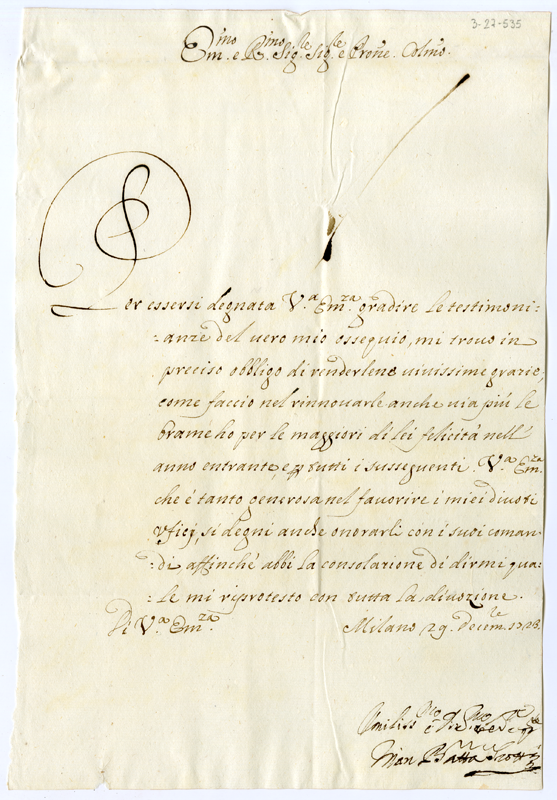 3-27-535
Em.mo e R.mo Sig.re Sig.re e Prone Colmo.
Per essersi degnata V.a Em.za gradire le testimoni:
:anze del vero mio ossequio, mi trovo in
preciso obbligo di renderlene vivissime grazie,
come faccio nel rinnovarle anche via più le
brame ho per le maggiori di lei felicità nell'
anno entrante, e p tutti i susseguenti. V.a Em.za
che è tanto generosa nel favorire i miei divoti
Uficj, si degni anche onorarli con i suoi coman:
:di affinché abbi la consolazione di dirmi qua:
:le mi riprotesto con tutta la divozione.
Di V.a Em.za
Milano 29. Decem.le 1728.
Umiliss.mo e
Gian Batta Trotti